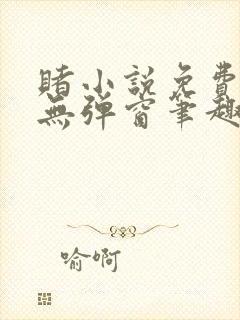 睹小說免費
無彈窗筆趣
喻啊